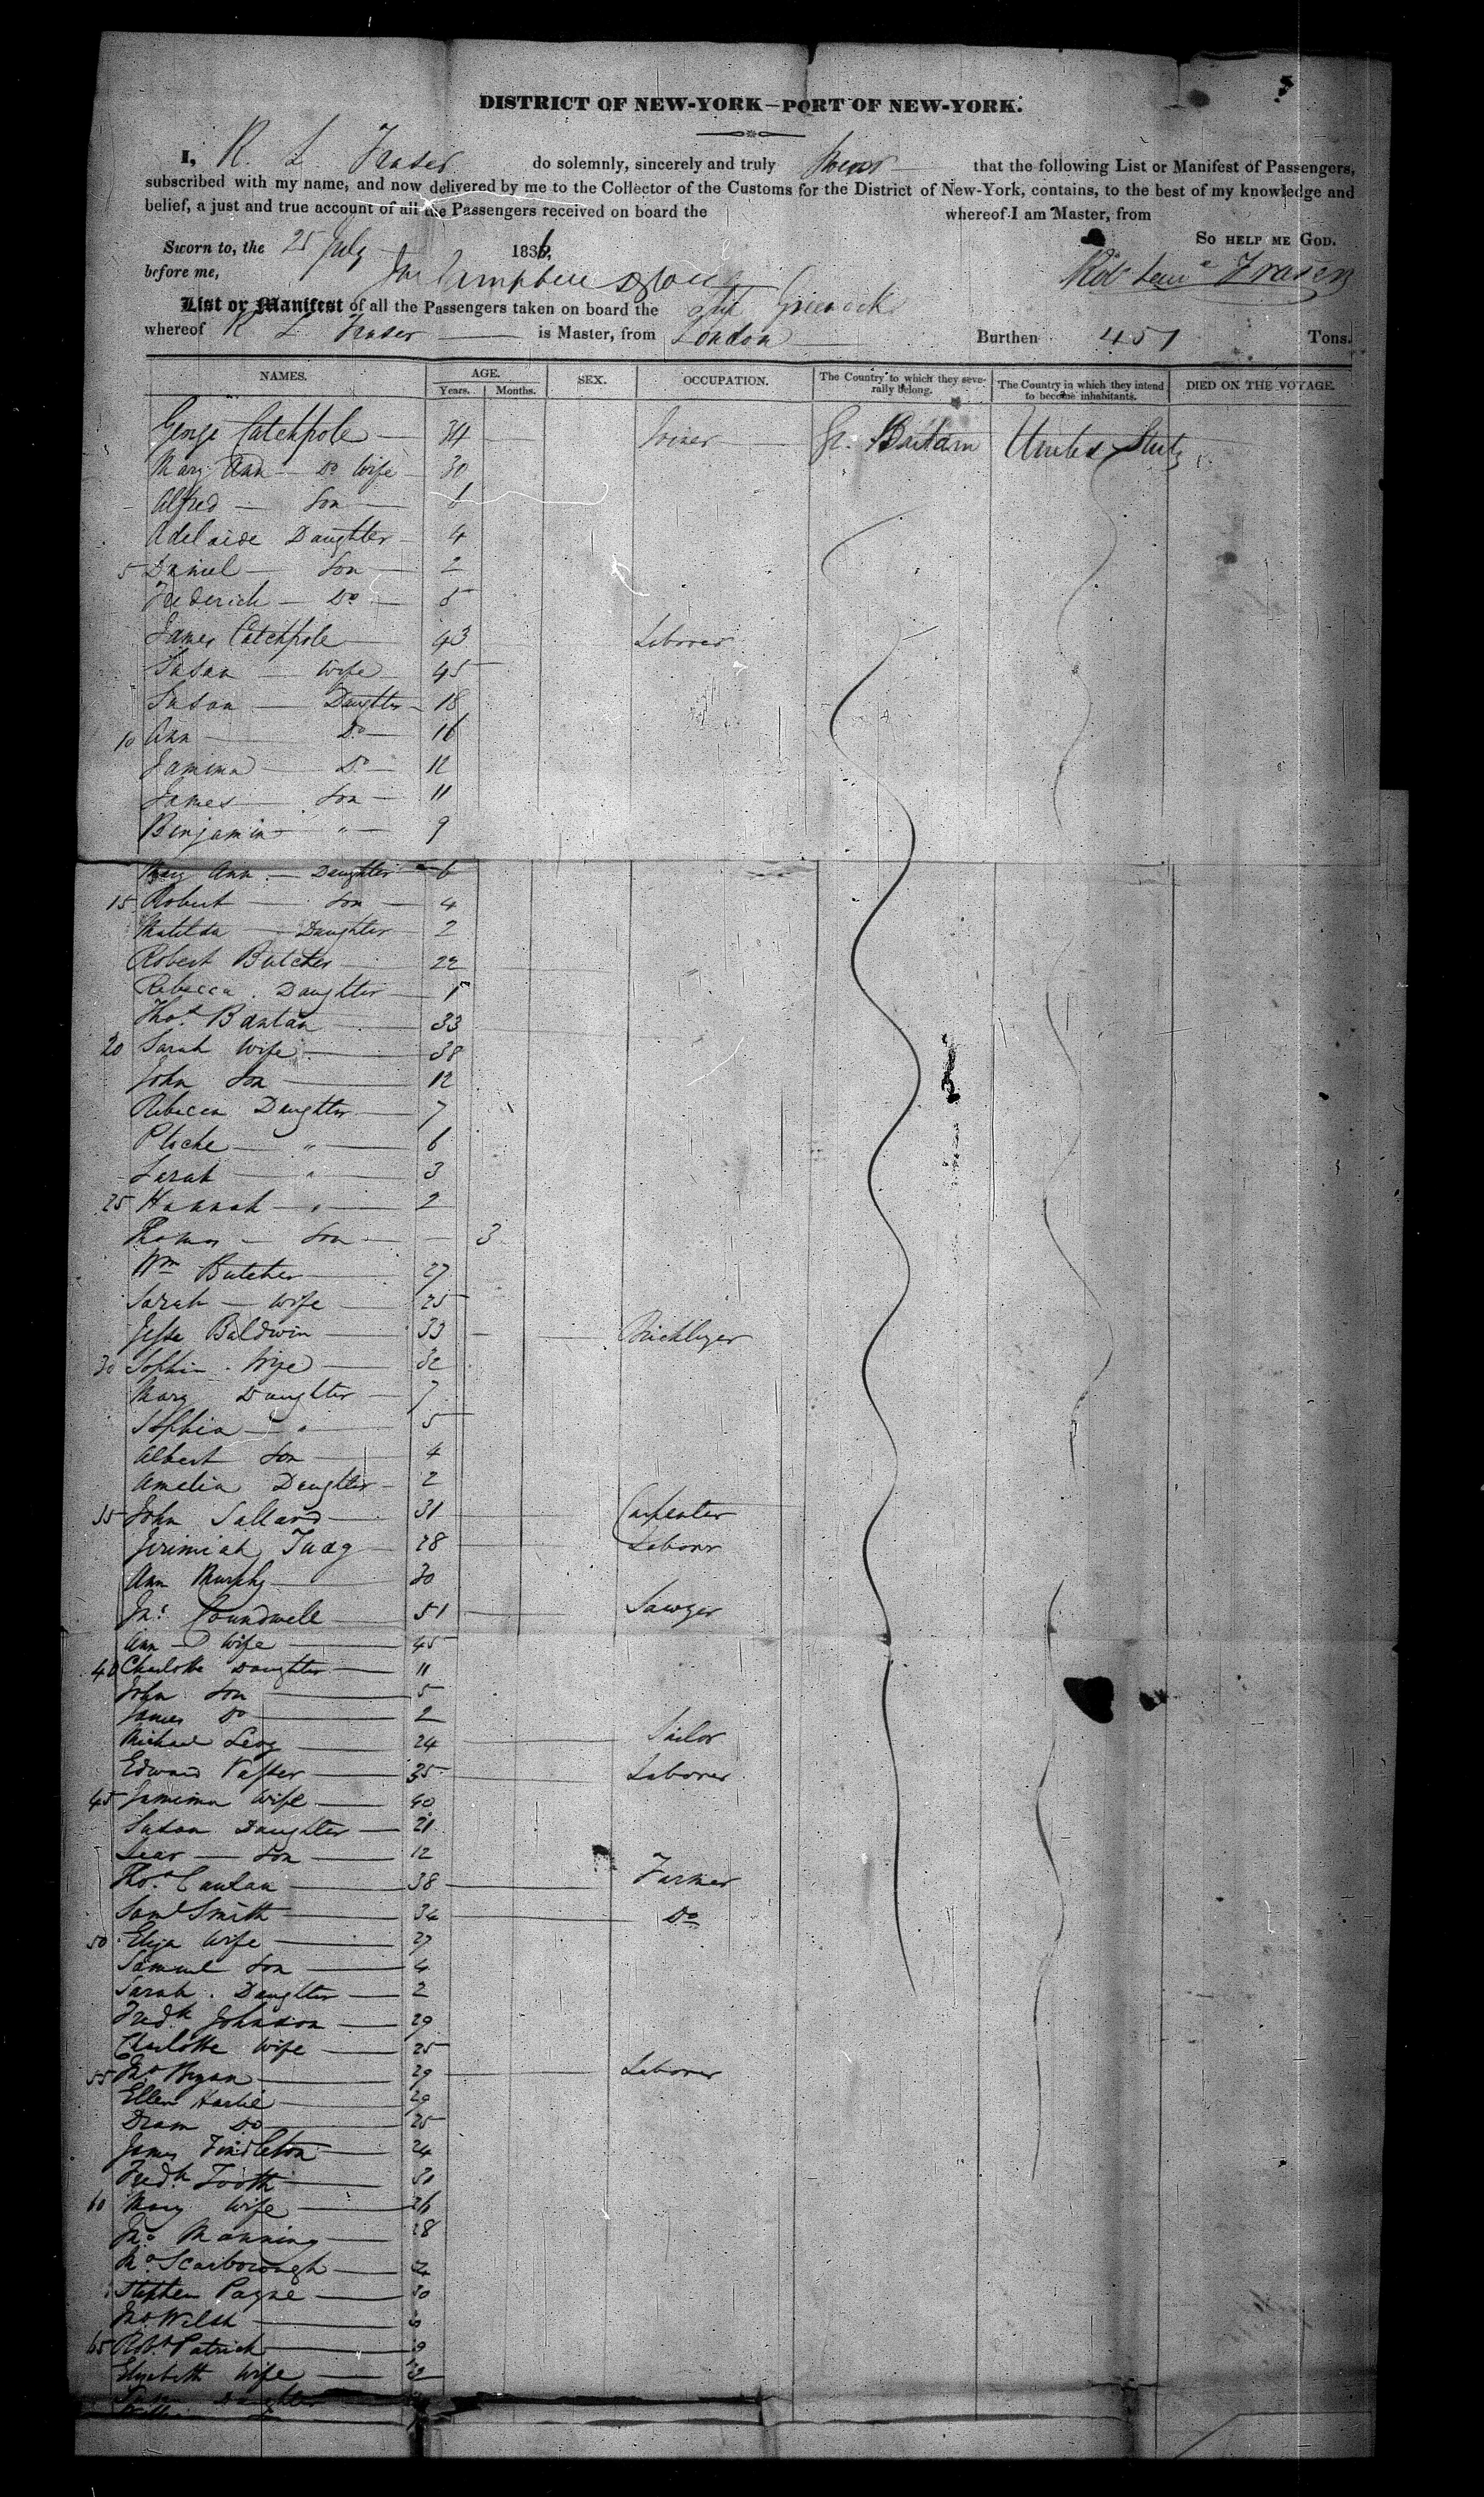 DISTRICT OF NEW-YORK—PORT OF NEW-YORK.
I, R. L. Fraser do solemnly, sincerely and truly swear that the following List or Manifest of Passengers,
subscribed with my name, and now delivered by me to the Collector of the Customs for the District of New-York, contains, to the best of my knowledge and
belief, a just and true account of all the Passengers received on board the whereof I am Master, from
Sworn to, the 25 July 1836, SO HELP ME GOD.
before me, Fraser
List or Manifest of all the Passengers taken on board the Ship Greenock
whereof R L Fraser is Master, from London Burthen 451 Tons.
NAMES. AGE. Years. Months. SEX. OCCUPATION. The Country to which they severally belong. The Country in which they intend to become inhabitants. DIED ON THE VOYAGE.
George Catchpole 34 Joiner Gt. Britain United States
Mary Ann Do Wife 30
Alfred Son 6
Adelaide Daughter 4
5 Daniel Son 2
Frederick Do
James Catchpole 43 Laborer
Susan Wife 45
Susan Daughter 18
10 Ann Do 16
Jamima Do 12
James Son 11
Benjamin " 9
Mary Ann Daughter 6
15 Robert Son 4
Matilda Daughter 2
Robert Butcher 22
Rebecca Daughter 1
Thos. Bantan 33
20 Sarah Wife 38
John Son 12
Rebecca Daughter 7
" 6
Sarah " 3
25 Hannah " 2
Thomas Son 3
Wm Butcher 27
Sarah Wife 25
Jesse Baldwin 33 Bricklayer
30 Sophia Wife 32
Mary Daughter 7
Sophia " 5
Albert Son 4
Amelia Daughter 2
35 John Sallard 31 Carpenter
Jerimiah 28 Laborer
Ann Murphy 30
Jno. Roundwell 51 Sawyer
Ann Wife 45
40 Charlotte Daughter 11
John Son 5
James Do 2
Michael Levy 24 Sailor
Edward 35 Laborer
45 Jamima Wife 40
Susan Daughter 21
Son 12
Thos. Cantan 38 Farmer
Saml Smith 34 Do
50 Eliza Wife 27
Samuel Son 4
Sarah Daughter 2
Fredk Johnson 29
Charlotte Wife 25
55 Jno. Bryan 29 Laborer
Ellen 29
Do 25
James 24
Fredk Tooth 31
60 Mary Wife 26
Jno. Manning 28
Scarborough
Stephen Payne 30
Jno Welsh
65 Robt. Patrick
Elizabeth Wife
Daughter